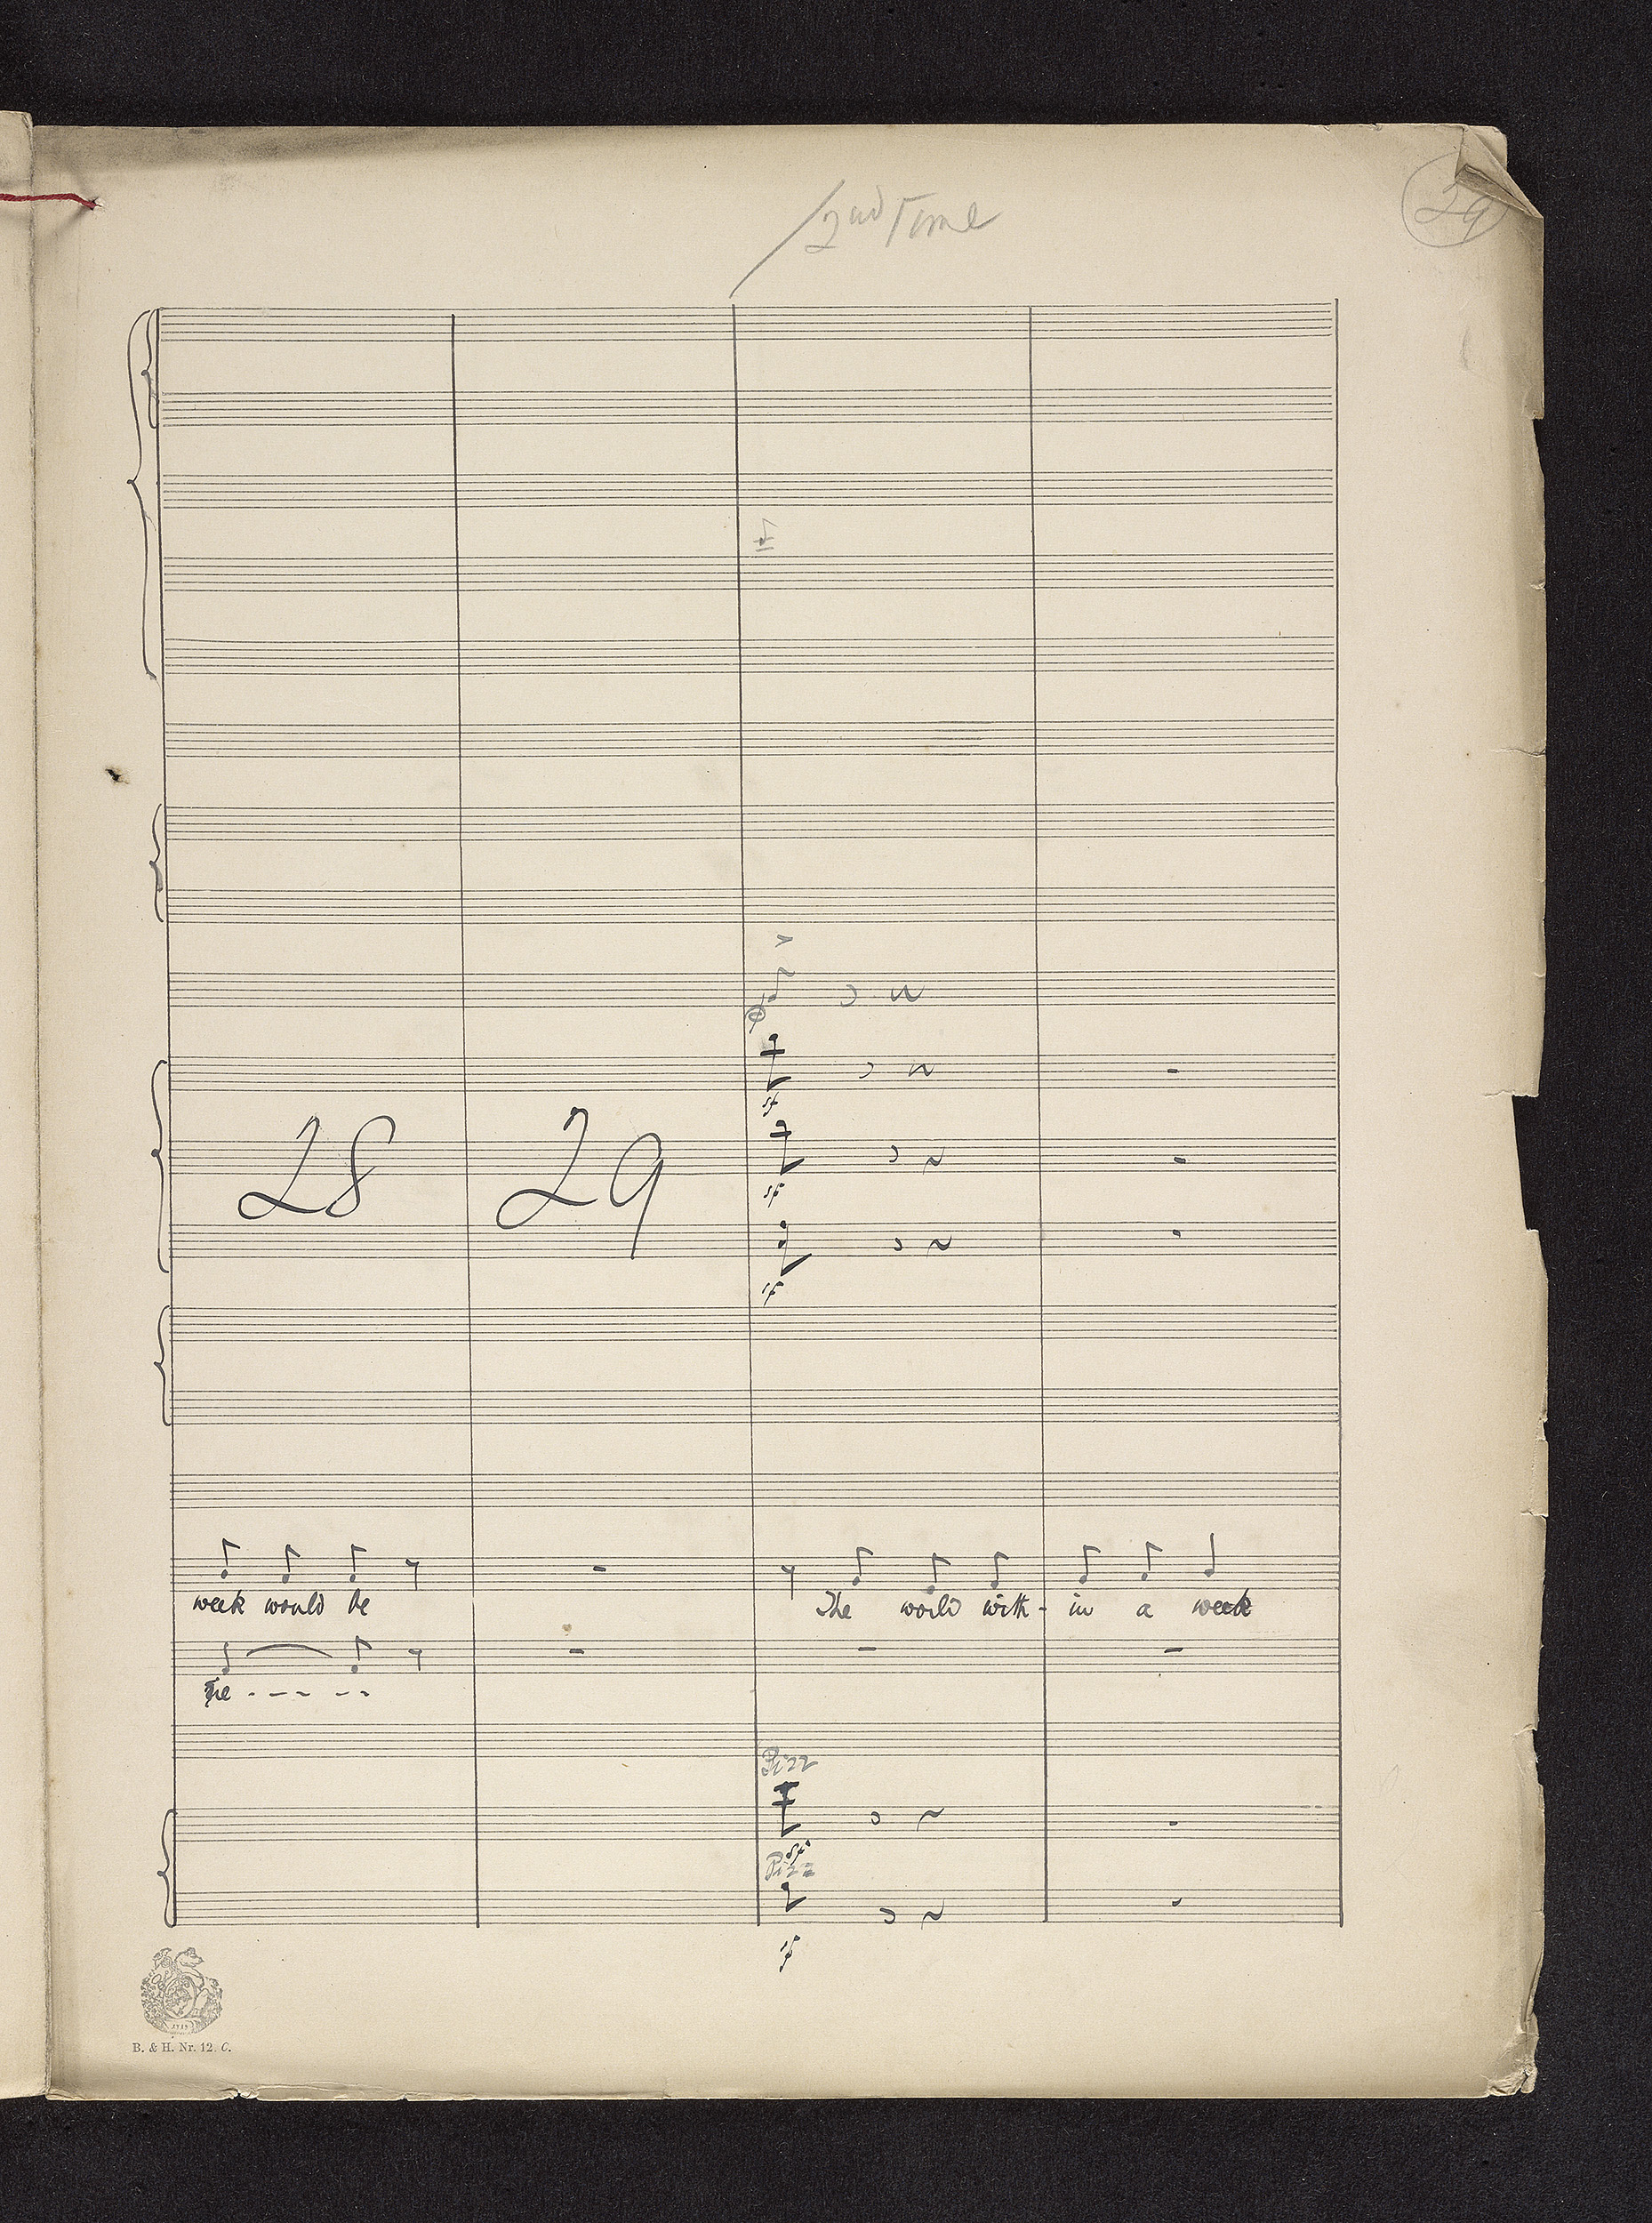 2nd Time
29
28 29
sf
sf
sf
week would be The world with- in a week
Pizz
sf
Pizz
sf
B. & H. Nr. 12. C.